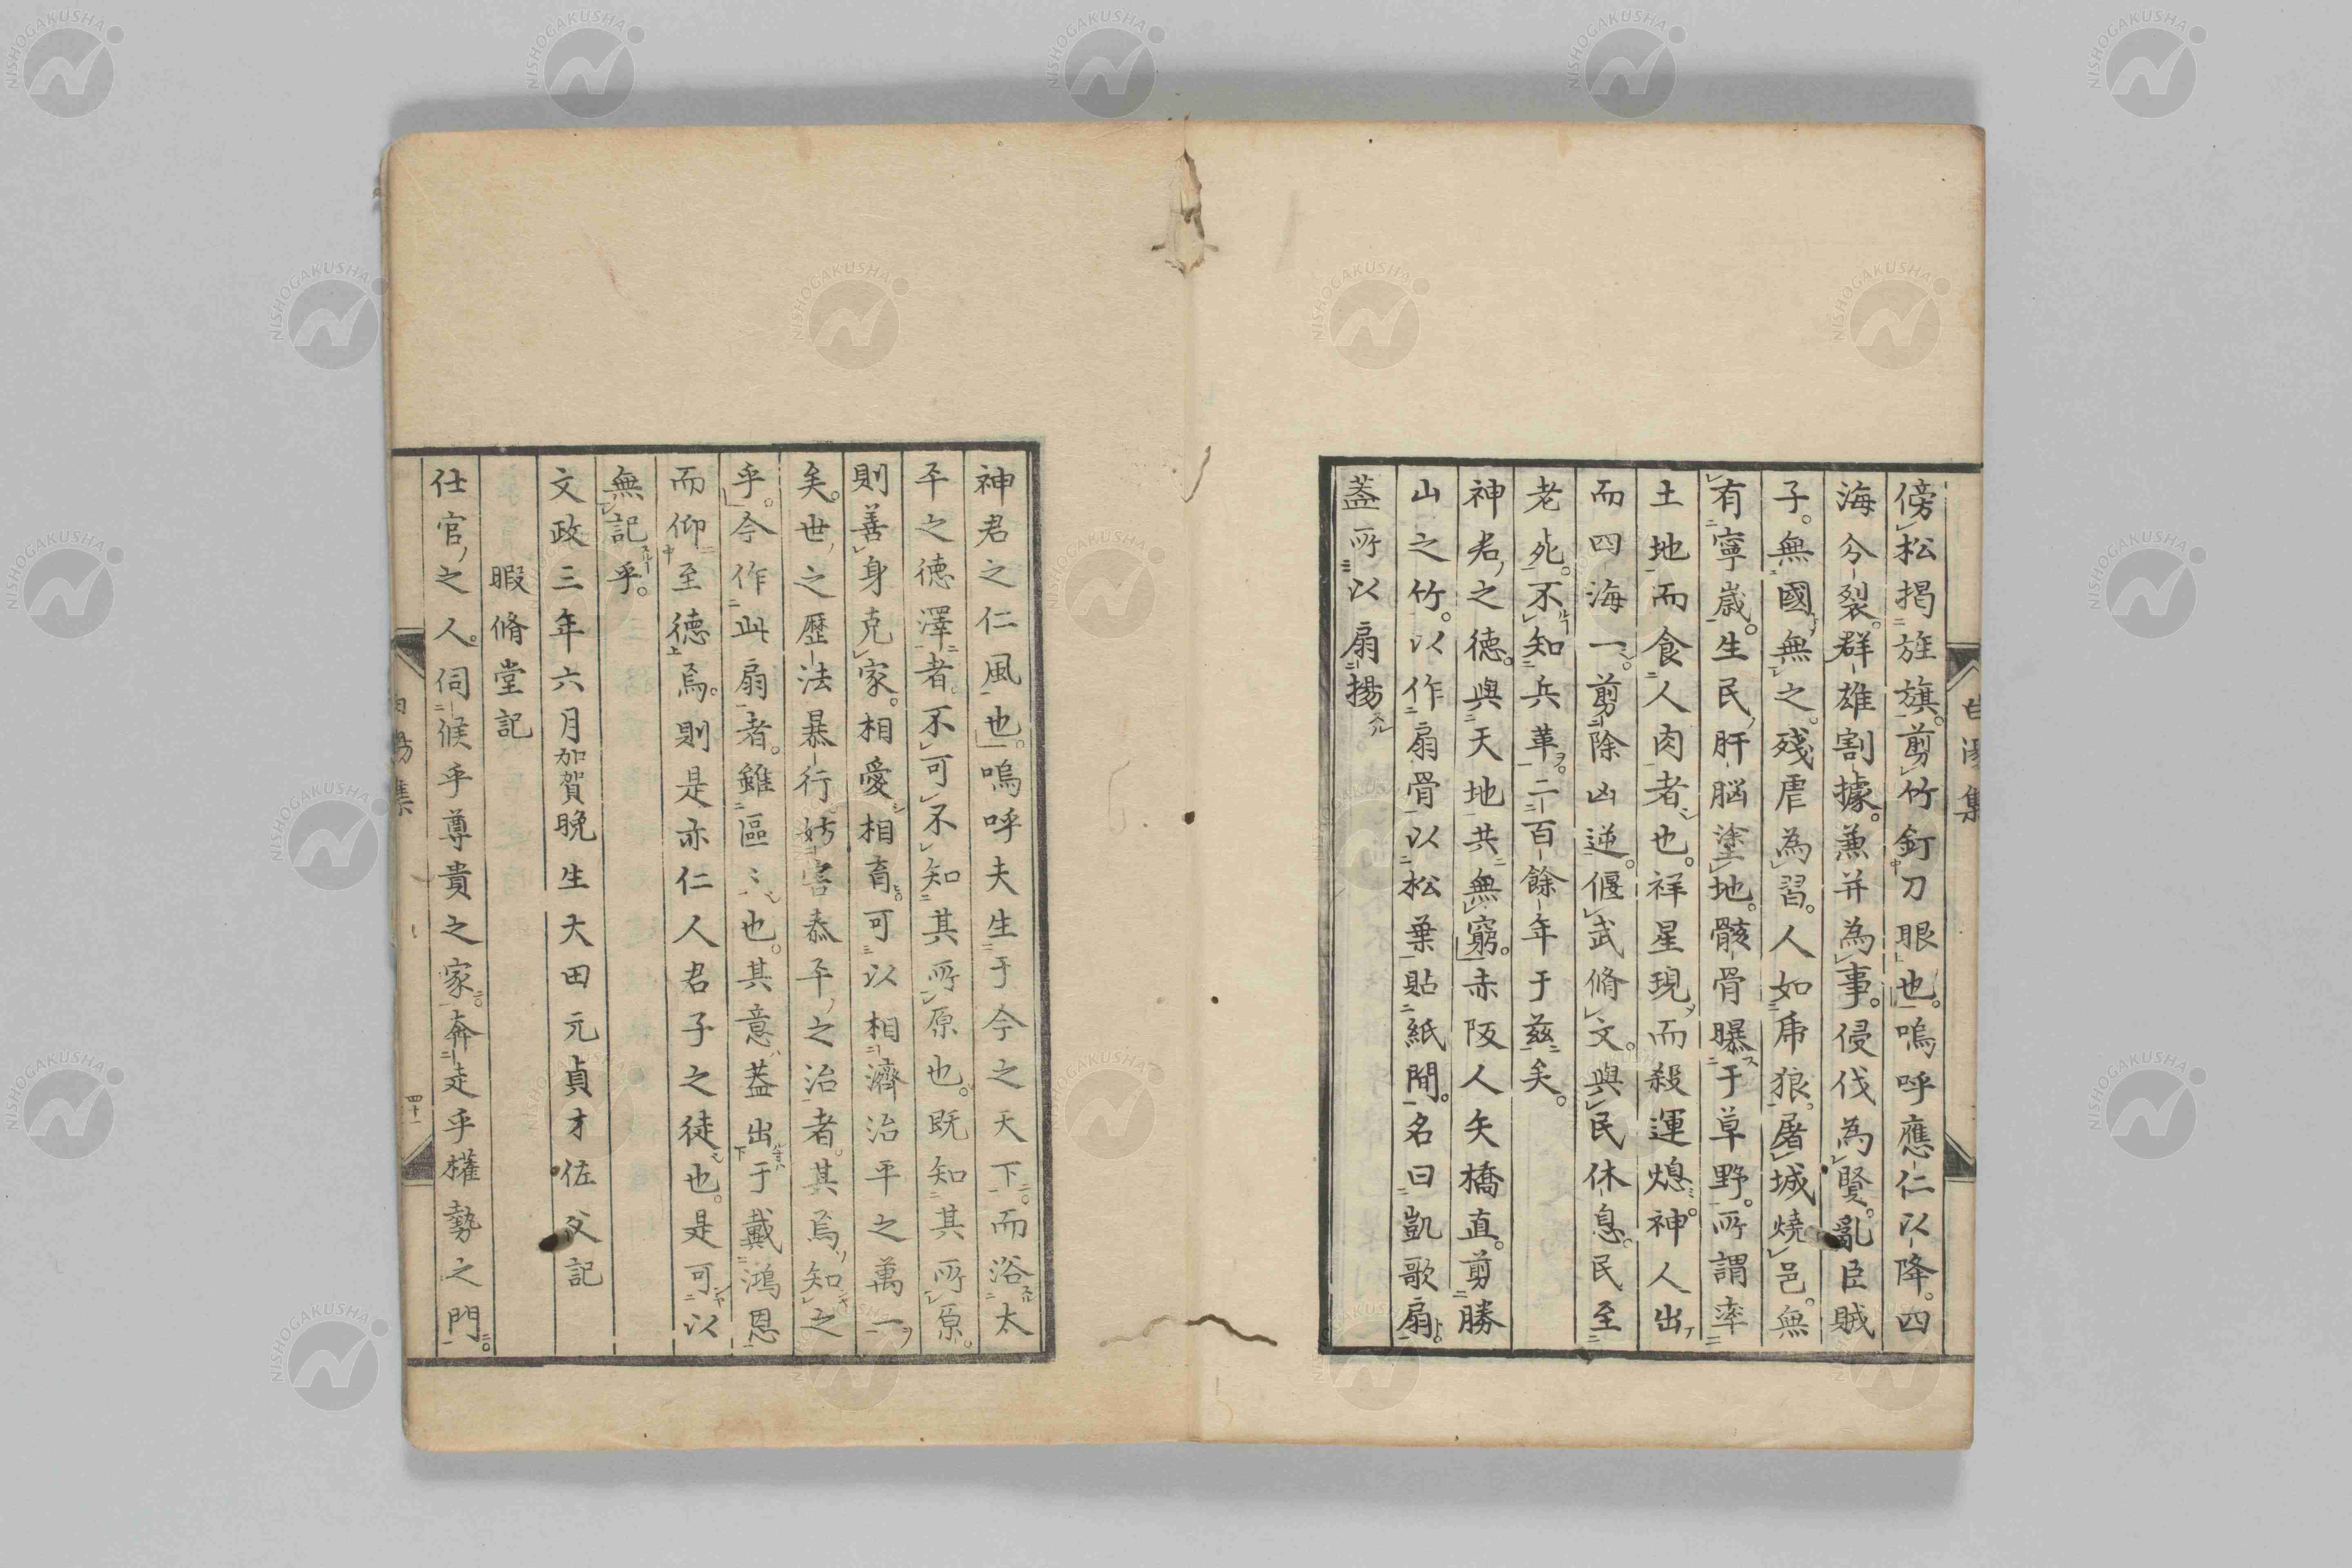 傍松掲旌旗。剪竹釘刀眼也。嗚呼應仁以降。四
海分裂。群雄割據。兼并為事。侵伐為賢。亂臣賊
子。無國無之。殘虐為習。人如乕狼。屠城燒邑。無
有寧歲。生民肝脳塗地。骸骨曝于草野。所謂率
土地而食人肉者也。祥星現而殺運熄。神人出
而四海一。剪除凶逆。偃武脩文。與民休息。民至
老死。不知兵革。二百餘年于茲矣。
神君之德。與天地共無窮。赤阪人矢橋直。剪勝
山之竹。以作扇骨以松葉貼紙間。名曰凱歌扇。
蓋所以扇揚
神君之仁風也。嗚呼夫生于今之天下。而浴太
平之德澤者。不可不知其所原也。既知其所原。
則善身克家。相愛相育。可以相濟治平之萬一
矣。世之歷法暴行妨害泰平之治者。其焉知之
乎。今作此扇者。雖區〻也。其意蓋出于戴鴻恩
而仰至德焉。則是亦仁人君子之徒也。是可以
無記乎。
文政三年六月加賀晚生大田元貞才佐父記
暇脩堂記
仕官之人。伺候乎尊貴之家。奔走乎權勢之門。
四十一
NISHOGAKUSHA